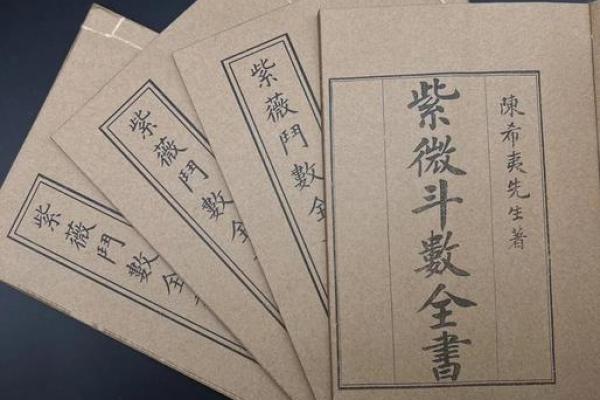 陳希夷先生著
紫微斗數全書
紫薇鬥數全
紫薇鬥數全
紫薇鬥數全